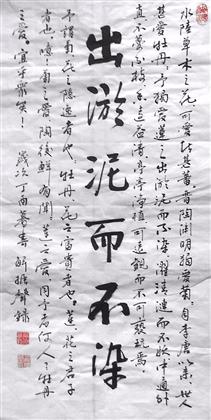 水陸草木之花可愛者甚蕃晉陶淵明獨愛菊自李唐以来世人
甚爱牡丹予獨爱蓮之出淤泥而不染濯清漣而不妖中通外
直不蔓不枝香遠益清亭亭净植可遠觀而不可褻玩焉
出淤泥而不染
予謂菊花之隱逸者也牡丹花之富貴者也蓮花之君子
者也噫菊之爱陶後鮮有聞蓮之爱同予者何人牡丹
之爱宜乎衆矣歲次丁酉暮春